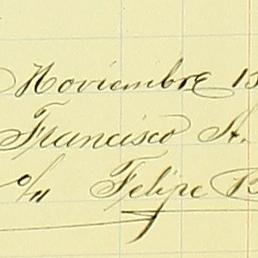 Noviembre 15
Francisco A.
o/n Felipe B